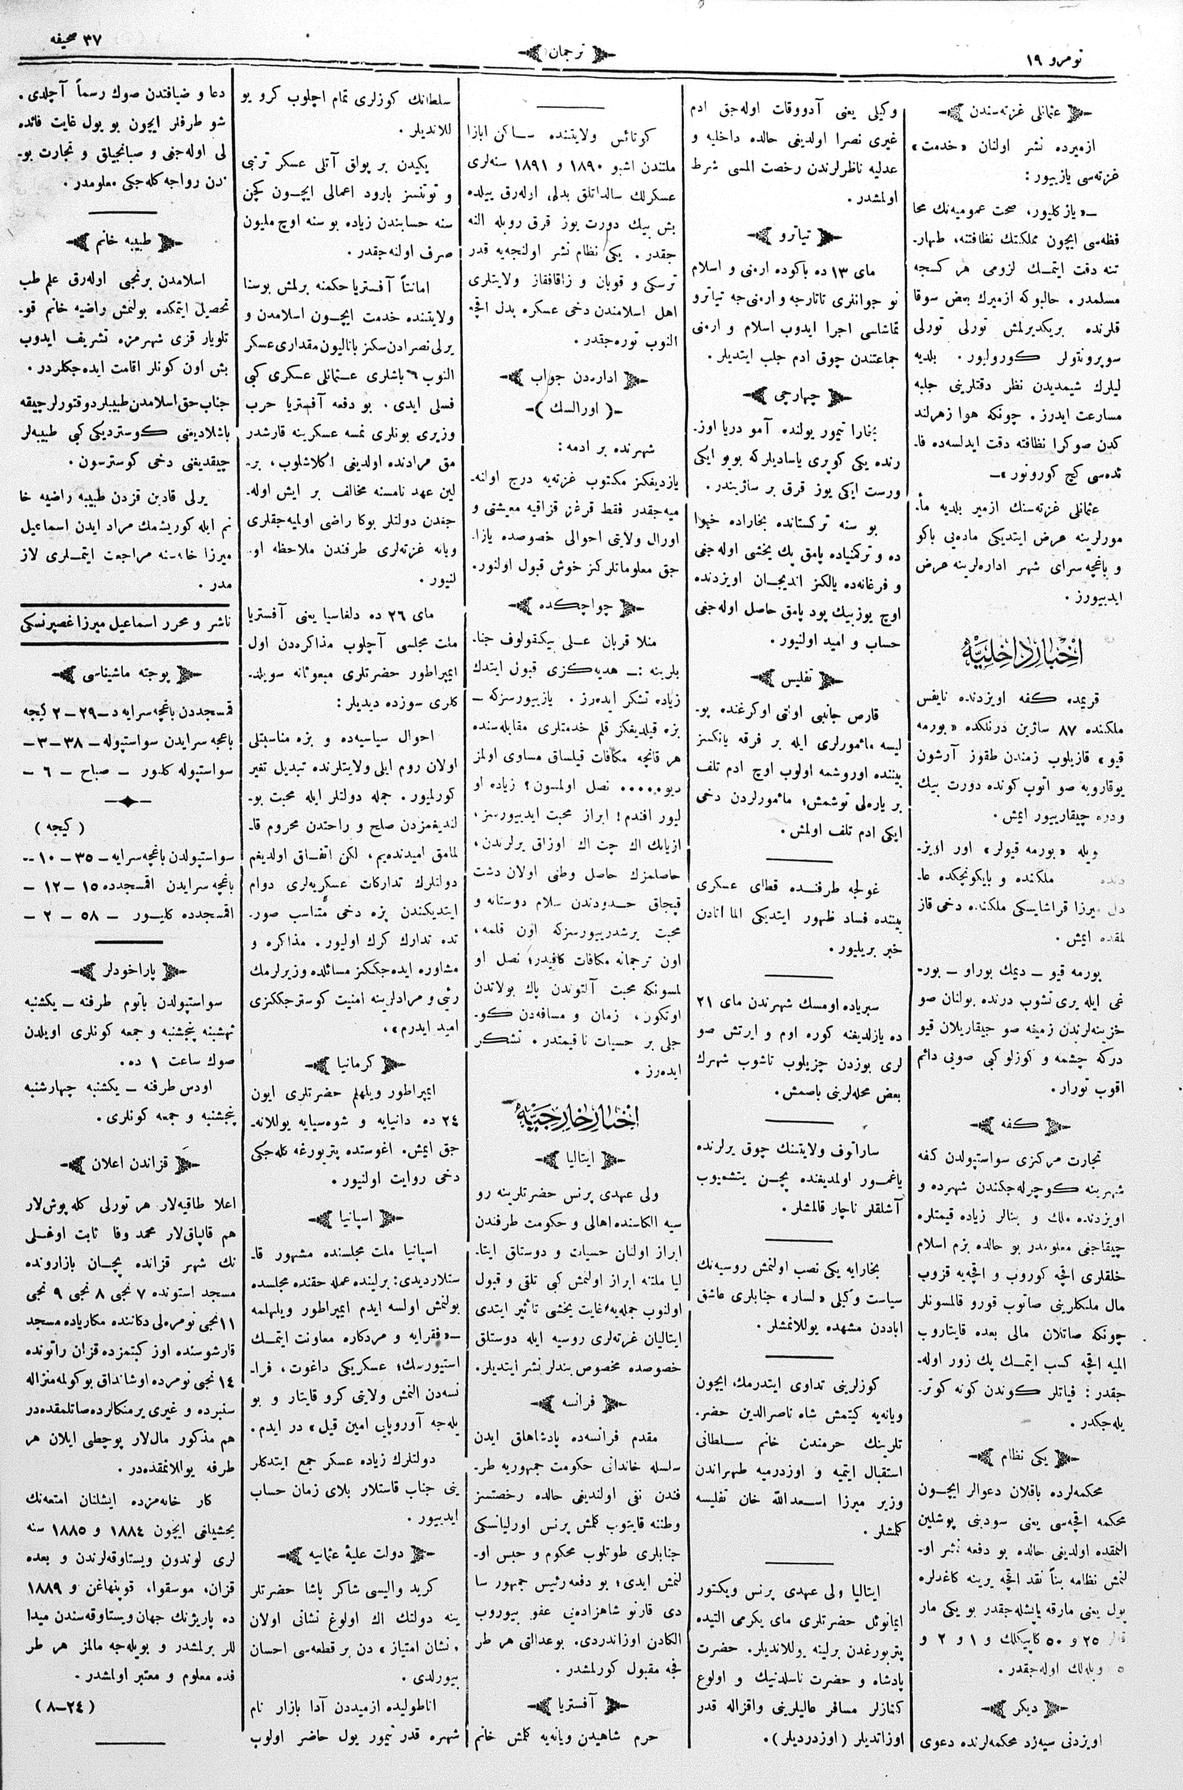 نومرو ١٩
ترجمان
٣٧ صحیفه
عثمانلی غزته‌سندن
ازمیرده نشر اولنان «خدمت»
غزته‌سی یازییور:
ـ«یازکلیور، صحت عمومیه‌نك محا
فظه‌سی ایچون مملکتك نظافتنه، طهار-
تنه دقت ایتمـك لزومی هر کسجه
مسلمدر. حالبوکه ازمیرك بعض سوقا
قلرنده بریکدیرلمش تورلی تورلی
سوپرونتولر کورولیور. بلدیه
لیلرك شیمدیدن نظر دقتلرینی جلبه
مسارعت ایدرز. چونکه هوا زهرلند
کدن صوکرا نظافته دقت ایدلسه‌ده فا-
ئده‌سی کیچ کورونور»ـ
عثمانلی غزته‌سنك ازمیر بلدیه مأ-
مورلرینه عرض ایتدیکی ماده‌یی باکو
و باغچه سرای شهر اداره‌لرینه عرض
ایدییورز.
اخبار داخلیه
قریمده کفه اویزدنده نایفس
ملکنده ٨٧ ساژین درنلکده «بورمه
قیو» قازیلوب زمندن طقوز آرشون
یوقاروبه صو آتوب کونده دورت بیك
ودره چیقارییور ایمش.
ویله «بورمه قیولر» اور اویز-
دنده ملکنده و بایکونچکده عا-
دل میرزا قراشایسکی ملکنده دخی قاز
لمقده ایمش.
بورمه قیو ـ دیمك بوراو ـ بور-
غی ایله یری نشوب درنده بولنان صو
خزینه‌لرندن زمینه صو جیقاریلان قیو
درکه چشمه و کوزلو کبی صویی دائم
اقوب تورار.
کفه
تجارت مرکزی سواستپولدن کفه
شهرینه کوچرله‌جکندن شهرده و
اویزدنده ملك و بنالر زیاده قیمتلره
چیقاجنی معلومدر بو حالده بزم اسلام
خلقلری اقچه کوروب و اقچه‌یه قزوب
مال ملکلرینی صاتوب قورو قالمسونلر
چونکه صاتلان مالی بعده قایتاروب
المیه اقچه کسب ایتمـك پك زور اوله-
جقدر: فیاتلر کوندن کونه کوتر-
یله‌جکدر.
یکی نظام
محکمه‌لرده باقلان دعوالر ایچـون
محکمه اقچه‌سی یعنی سودبنی پوشلین
النمقده اولدیغی حالده بو دفعه نشر او-
لنمش نظامه بناً نقد اقچه یرینه کاغدلره
پول یعنی مارقه یاپشله‌جقدر بو یکی مار
قه‌لر ٢٥ و ٥٠ کاپیکلك و ١ و ٢ و
٥ وبله‌لك اوله‌جقدر.
دیکر
اویزدنی سیه‌زد محکمه‌لرنده دعوی
وکیلی یعنی آدووقات اوله‌جق ادم
غیری نصرا اولدیغی حالده داخلیه و
عدلیه ناظرلرندن رخصت المسی شرط
اولمشدر.
تیاترو
مای ١٣ ده باکوده ارمنی و اسلام
نو جوانلری تاتارجه و ارمنی‌جه تیاترو
تماشاسی اجرا ایدوب اسلام و ارمنی
جماعتندن چوق ادم جلب ایتدیلر.
چهارجی
بخارا تیمور یولنده آمو دریا اوز-
رنده یکی کوپری یاسادیلرکه بویو ایکی
ورست ایکی یوز قرق بر ساژیندر.
بو سنه ترکستانده بخاراده خیوا
ده و ترکمنیاده پامق پك یخشی اوله‌جنی
و فرغانه‌ده یالکز اندیجـان اویزدنده
اوچ یوزبیك پود پامق حاصل اوله‌جنی
حساب و امید اولنیور.
تفلیس
قارص جانبی اونی اوکرغنده پو-
لیسه مأمورلری ایله بر فرقه یانکسز
بیننده اوروشمه اولوب اوچ ادم تلف
بر یاره‌لی توشمش؛ مأمورلردن دخی
ایکی ادم تلف اولمش.
غولجه طرفنـده قطای عسکری
بیننده فساد ظهور ایتدیکی الماتادن
خبر بریلیور.
سبریاده اومسك شهرندن مای ٢١
ده یازلدیغنه کوره اوم و ایرتش صو
لری بوزدن چزیلوب تاشوب شهرك
بعض محله‌لرینی باصمش.
ساراتوف ولایتنك چوق یرلرنده
یاغمـور اولمدیغنده پچـن یتشمیوب
آشلقلر ناچار قالمشلر.
بخارایه یکی نصب اولنمش روسیه‌نك
سیاست وکیلی «لسار» جنابلری عاشق
اباددن مشهده یوللانمشلر.
کوزلرینی تداوی ایتدرمك ایچون
ویانه‌یه کیتمش شاه ناصرالدین حضر-
تلرینك حرمندن خانم سلطانی
استقبال ایتمیه و اوزدرمیه طهراندن
وزیر میرزا اسـعدالله خان تفلیسه
کلمشلر.
ایتالیا ولی عهدی پرنس ویکتور
ایمانوئل حضرتلری مای یکرمی التیده
پتربورغدن برلینه یوللاندیلر. حضرت
پادشاه و حضرت ناسلدنیك و اولوغ
کنیازلر مسافر عالیلرینی واقزاله قدر
اوزاتدیلر (اوزدردیلر).
کوتائس ولایتنده سـاکن ابازا
ملتندن اشبو ١٨٩٠ و ١٨٩١ سنه‌لری
عسکرلك سالداتلق بدلی اوله‌رق ییلده
بش بیك دورت یوز قرق روبله النه
جقدر. یکی نظام نشر اولنجه‌یه قدر
ترسکی و قوبان و زاقافقاز ولایتلری
اهل اسلامندن دخی عسکره بدل اقچه
النوب توره‌جقدر.
اداره‌دن جواب
ـ(اورالسك)ـ
شهرنده بر ادمه:
یازدیغکز مکتوب غزته‌یه درج اولنه-
میه‌جقدر فقط قرغز قزاقیه معیشتی و
اورال ولایتی احوالی خصوصده یازا-
جق معلوماتلرکز خوش قبول اولنور.
چواچکده
منلا قربان عـلی بیکقولوف جنا-
بلرینه: ـ هدیه‌کزی قبول ایتدك
زیاده تشکر ایده‌رز. یازییورسزکه ـ
بزه قیلدیفکز قلم خدمتلری مقابله‌سنده
هر قانچه مکافات قیلساق مساوی اولمز
دیو..... نصل اولمسون؟ زیاده او
لیور افندم! ابراز محبت ایدییورسز،
ازیانك اك چت اك اوزاق یرلرندن،
حاصلمزك حاصل وطنی اولان دشت
قپجاق حـدودندن سلام دوستانه و
محبت یرشدرییورسزکه اون قلمه،
اون ترجمانه مکافات کافیدر؛ نصل او
لمسونکه محبت آلتوندن پاك بولاتدن
اوتکون، زمان و مسافه‌دن کو-
جلی بر حسیات ناقیمتدر. تشکر
ایده‌رز.
اخبار خارجیه
ایتالیا
ولی عهدی پرنس حضرتلرینه رو
سیه الکاسنده اهالی و حکومت طرفندن
ابراز اولنان حسیات و دوستلق ایتا-
لیا ملتنه ابراز اولنمش کبی تلقی و قبول
اولنوب جمله‌یه غایت یخشی تأثیر ایتدی
ایتالیان غزته‌لری روسیه ایله دوستلق
خصوصده مخصوص بندلر نشر ایتدیلر.
فرانسه
مقدم فرانسه‌ده پادشاهلق ایدن
سلسله خاندانی حکومت جمهوریه طر-
فندن نفی اولندیغی حالده رخصتسز
وطننه قایتوب کلمش پرنس اورلیانسکی
جنابلری طوتلوب محکوم و حبس او-
لنمش ایدی؛ بو دفعه رئیس جمهور سا
دی قارنو شاهزاده‌نی عفو بیوروب
الکادن اوزاندردی. بوعدالتی هر طر
فجه مقبول کورلمشدر.
آفستریا
حرم شاهیدن ویانه‌یه کلمش خانم
سلطانك کوزلری تمام اچلوب کرو یو
للاندیلر.
یکیدن بر پولق آتلی عسکر ترتبی
و توتنسز بارود اعمالی ایچـون کچن
سنه حسابندن زیاده بو سنه اوچ ملیون
صرف اولنه‌جقدر.
امانتاً آفستریا حکمنه برلمش بوسنا
ولایتنده خدمت ایچـون اسلامدن و
یرلی نصرادن سکز باتالیون مقداری عسکر
النوب ٦ باشلری عـثمانلی عسکری کبی
فسلی ایدی. بو دفعه آفستریا حرب
وزیری بونلری نمسه عسکرینه قارشدر
مق مرادنده اولدیغی اکلاشلوب، بر-
لین عهد نامسنه مخالف بر ایش اوله-
جغدن دولتلر بوکا راضی اولمیه‌جقلری
ویانه غزته‌لری طرفندن ملاحظه او-
لنیور.
مای ٢٦ ده دلغاسیا یعنی آفستریا
ملت مجلسی آچلوب مذاکره‌دن اول
ایمپراطور حضرتلری مبعوثانه سویلد-
کلری سوزده دیدیلر:
احوال سیاسیه‌ده و بزه مناسبتلی
اولان روم ایلی ولایتلرنده تبدیل تغیر
کورلمیور. جمله دولتلر ایله محبت بو-
لندیغمزدن صلح و راحتدن محروم قا-
لمامق امیدنده‌یم، لکن اتفـاق اولدیغم
دولتلرك تدارکات عسکریه‌لری دوام
ایتدیکندن بزه دخی متناسب صور-
تده تدارك کرك اولیور. مذاکره و
مشاوره ایده‌جککز مسائلده وزیرلرمك
رئی و مرادلرینه امنیت کوسترجککزی
امید ایدرم».
کرمانیا
ایمپراطور ویلهلم حضرتلری ایون
٢٤ ده دانیایه و شوه‌سیایه یوللانه-
جق ایمش. اغوستده پتربورغه کله‌جکی
دخی روایت اولنیور.
اسپانیا
اسپانیا ملت مجلسنده مشهور قا-
ستلاردیدی: برلینده عمله حقنده مجلسده
بولنمش اولسه ایدم ایمپراطور ویلهلمه
ـ«فقرایه و مردکاره معاونت ایتمـك
استیورسك؛ عسکریکی داغوت، فرا-
نسه‌دن النمش ولایتی کرو قایتار و بو
یله‌جه آوروپایی امین قیل» در ایدم.
دولتلرك زیاده عسکر جمع ایتدکلر
ینی جناب قاستلار بلای زمان حساب
ایدییور.
دولت علیهٔ عثمانیه
کرید والیسی شاکر پاشا حضرتلر
ینه دولتك اك اولوغ نشانی اولان
«نشان امتیاز» دن بر قطعه‌سی احسان
بیورلدی.
اناطولیده ازمیددن آدا بازار نام
شهره قدر تیمور یول حاضر اولوب
دعا و ضیافتدن صوك رسماً آچلدی.
شو طرفلر ایچون بو یول غایت فائده
لی اوله‌جنی و صبانجیلق و تجارت بو-
ندن رواجه کله‌جکی معلومدر.
طبیبه خانم
اسلامدن برنجی اوله‌رق علم طب
تحصیل ایتمکده بولنمش راضیه خانم قو-
تلویار قزی شهرمزه تشریف ایدوب
بش اون کونلر اقامت ایده‌جکلردر.
جناب حق اسلامدن طبیبلر دوقتورلر چیقه
باشلادیغنی کوستردیکی کبی طبیبه‌لر
چیقدیغنی دخی کوسترسون.
یرلی قادین قزدن طبیبه راضیه خا
نم ایله کوریشمك مراد ایدن اسماعیل
میرزا خانه‌سنه مراجعت ایتمـلری لاز
مدر.
ناشر و محرر اسماعیل میرزا غصپرنسکی
پوچته ماشیناسی
قمسجددن باغچه سرایه د ـ٢٩ـ ٢ کیجه
باغچه سرایدن سواستپوله ـ ٣٨ ـ٣ـ
سواستپوله کلور ـ صباح ـ ٦ ـ
(کیجه)
سواستپولدن باغچه سرایه ـ ٣٥ ـ١٠ـ
باغچه سرایدن اقمسجدده ١٥ـ ١٢ ـ
اقمسجدده کلیـور ـ ٥٨ ـ ٢ ـ
پاراخودلر
سواستپولدن باتوم طرفنه ـ یکشنبه
ثهشبنه پنجشنبه و جمعه کونلری اویلدن
صوك ساعت ١ ده.
اودس طرفنه ـ یکشنبه چهارشنبه
پنجشنبه و جمعه کونلری.
قزاندن اعلان
اعلا طاقیه‌لار هر تورلی کله پوش‌لار
هم قالپاق‌لار محمد وفا ثابت اوغـلی
نك شهر قزانده پچـان بازارونده
مسجد استونده ٧ نجی ٨ نجی ٩ نجی
١١نجی نومره‌لی دکاننده مکاریاده مسجد
قارشوسنده اوز کبتمزده قزان راتونده
١٤ نجی نومرده اوشانداق بوکولمه منزاله
سنبرده و غیری یرمنکالرده صاتلمقده‌در
هم مذکور مال‌لار پوچطی ایلان هر
طرفه یوللانمقده‌در.
کار خانه‌مزده ایشلنان امتعه‌نك
یخشیلغی ایچون ١٨٨٤ و ١٨٨٥ سنه
لری لوندون ویستاوقه‌لرندن و بعده
قزان، موسقوا، قوپنهاغن و ١٨٨٩
ده پاریژنك جهان ویستاوقه‌سندن میدا
للر برلمشدر و بویله‌جه مالمز هر طر
فده معلوم و معتبر اولمشدر.
(٢٤ـ٨)